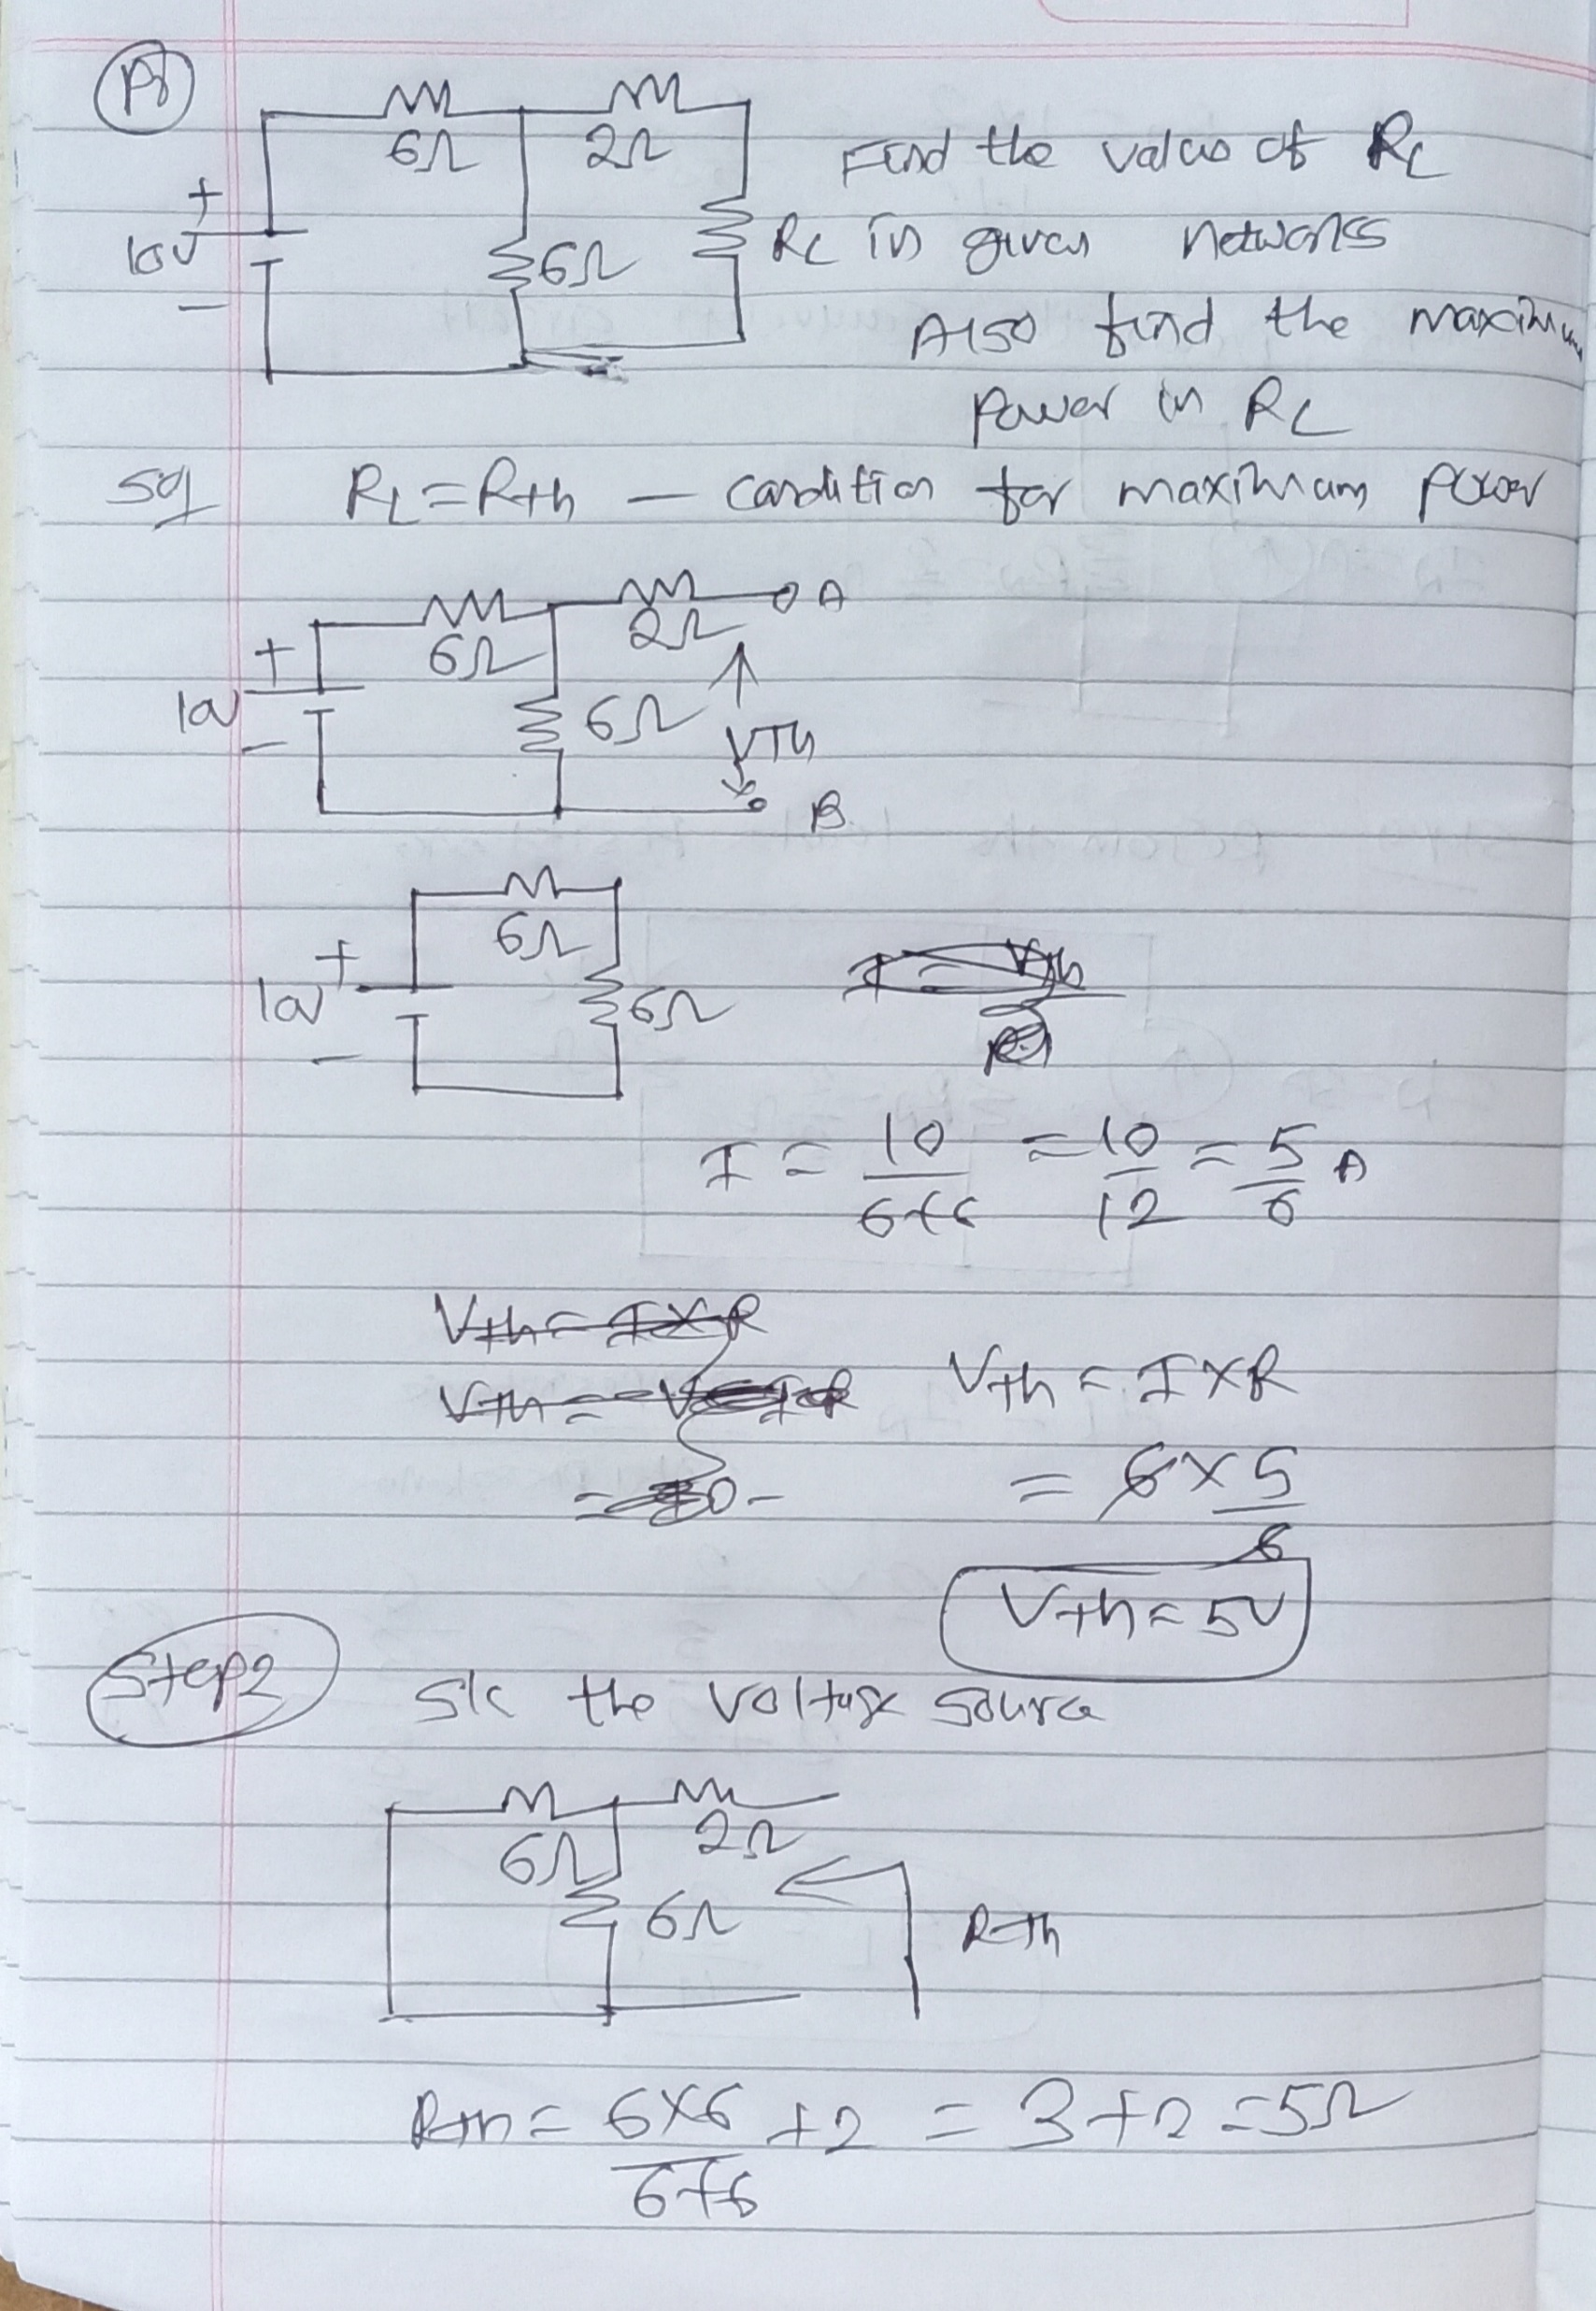 Pr
6Ω 2Ω
Find the value of RL
+
10V
6Ω
RL in given networks
-
Also find the maximum
power in RL
Sol RL = Rth — condition for maximum power
6Ω 2Ω A
+
10V
6Ω
Vth
-
B
6Ω
+
10V
6Ω
-
I = Vth
I = 10/6+6 = 10/12 = 5/6 A
Vth = I×R
Vth = I×R
= 6×5/6
Vth = 5V
Step2 S/c the voltage source
6Ω 2Ω
6Ω
Rth
Rth = 6×6/6+6 +2 = 3+2 = 5Ω